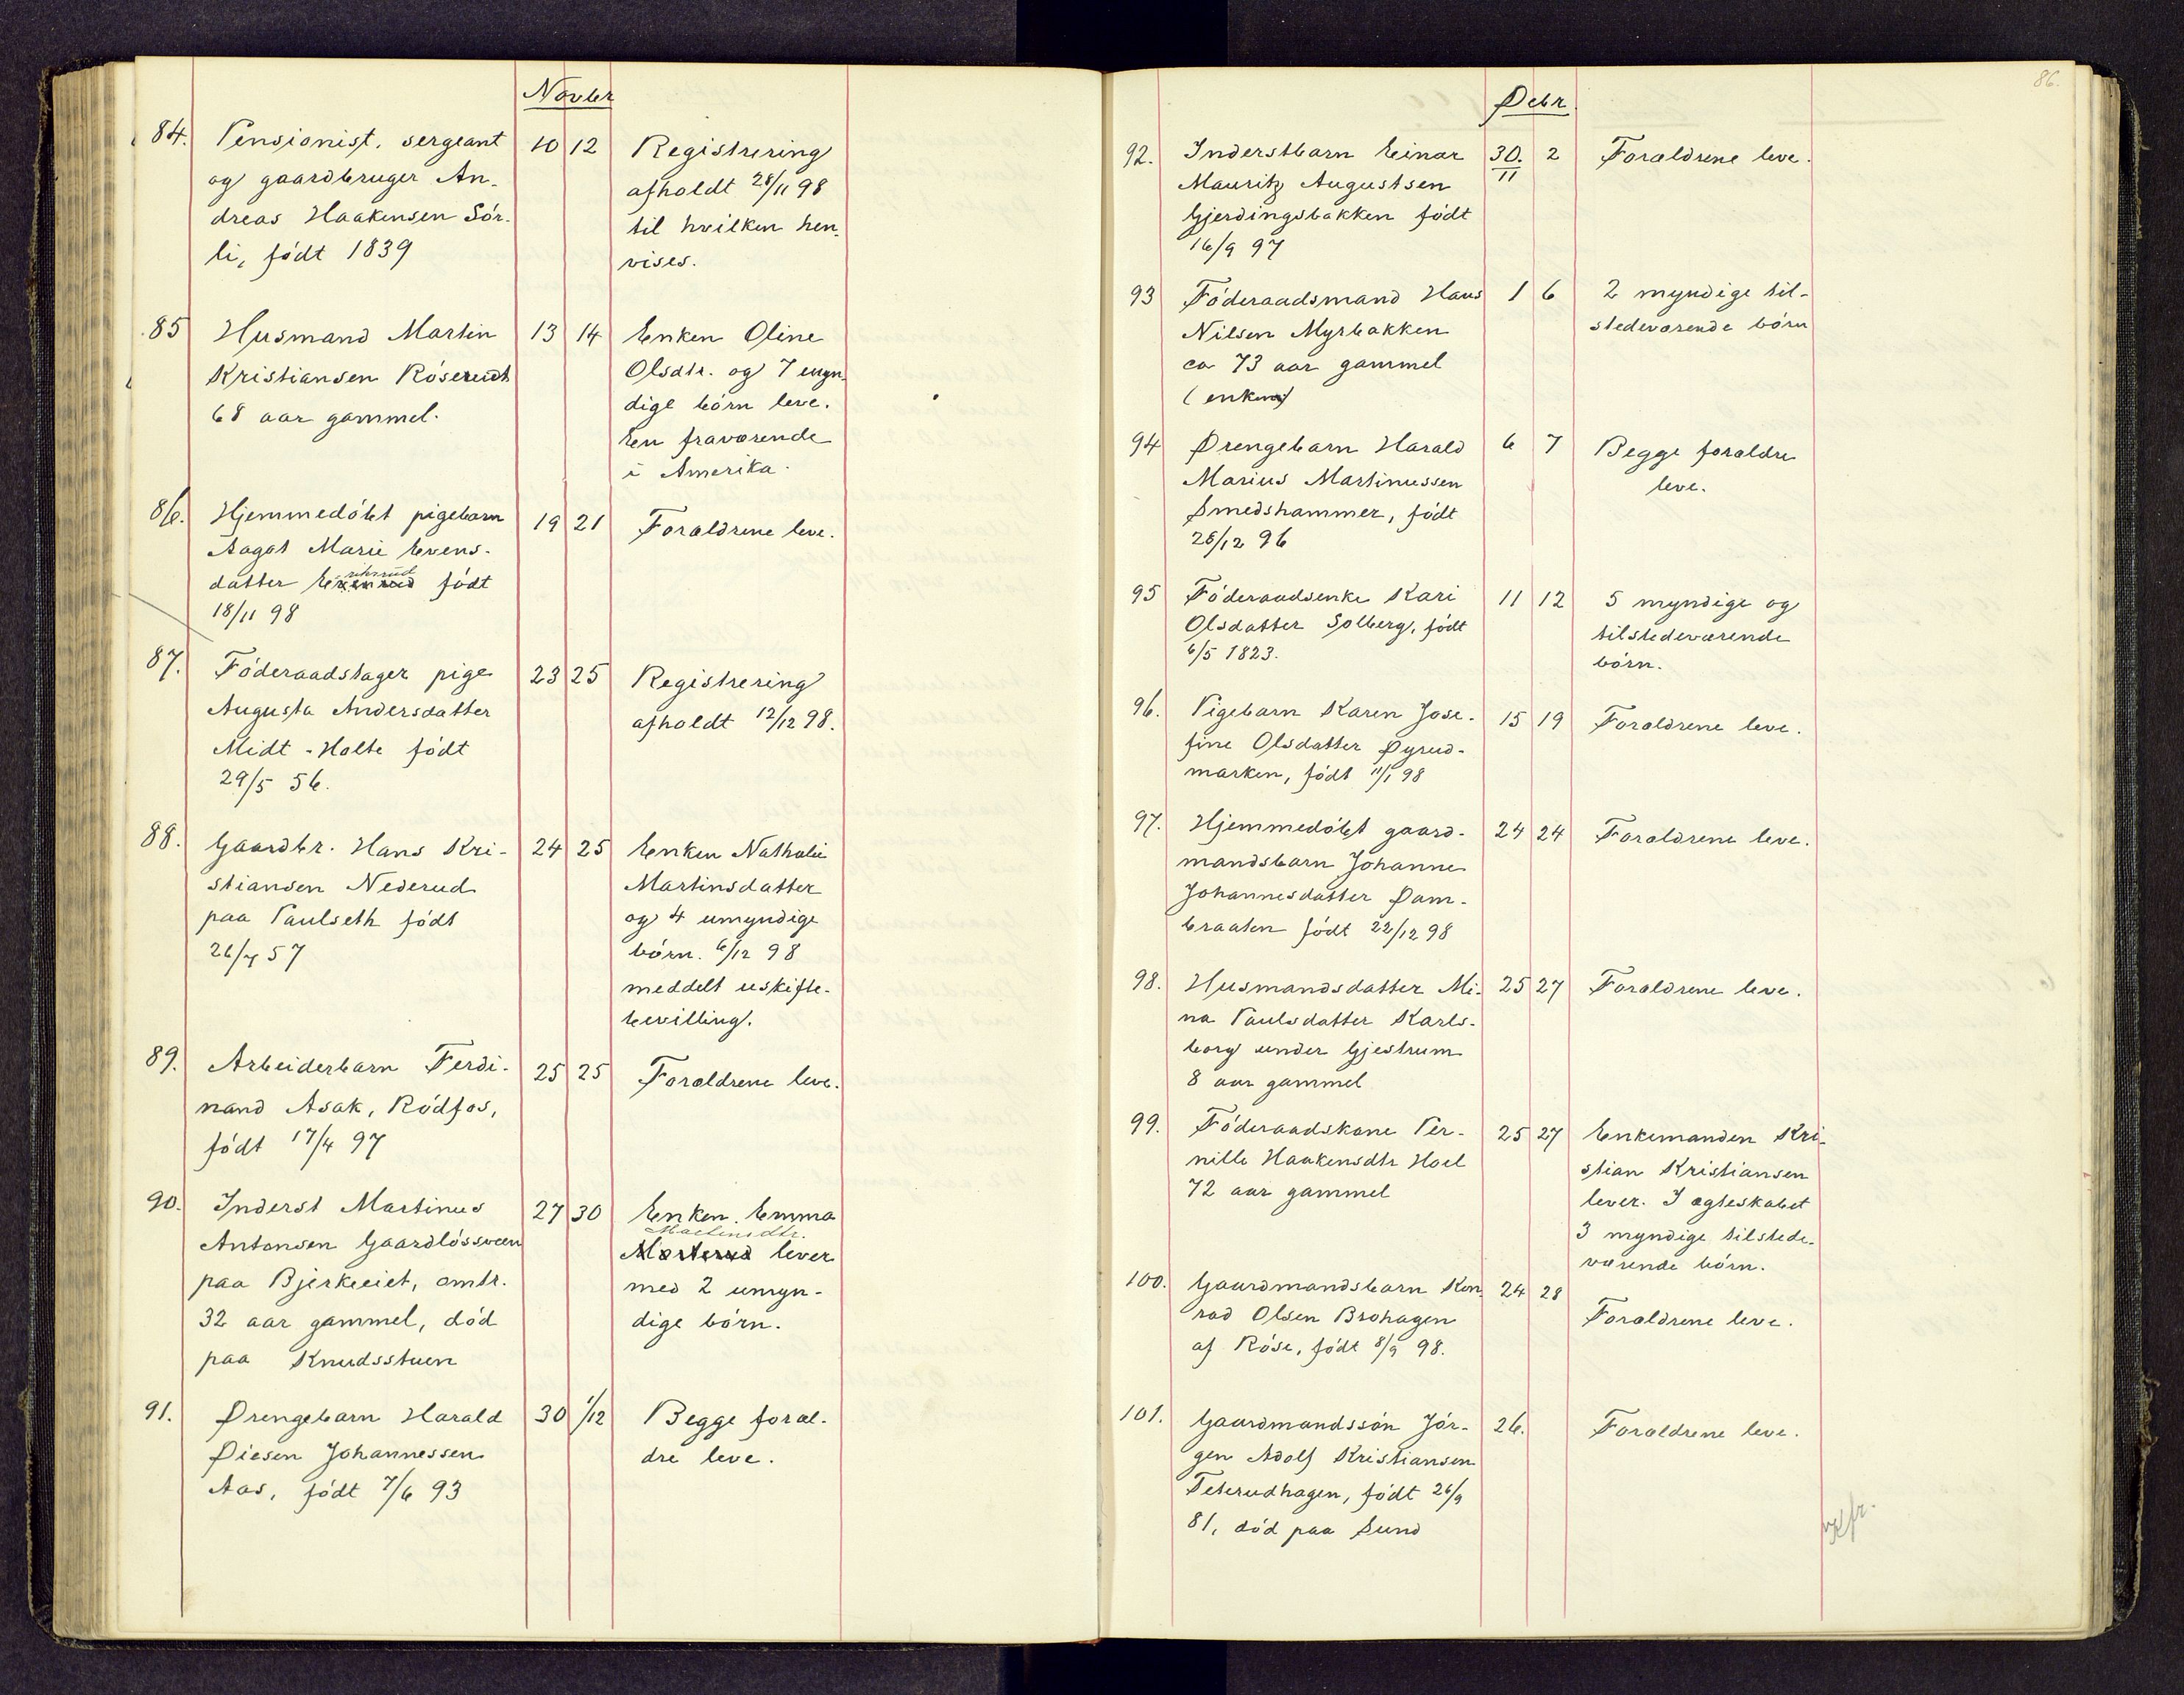 Novbr
84. Pensionist, sergeant 10 12 Registrering
og gaardbruger An- afholdt 28/11 98
dreas Haakensen Sör- til hvilken hen-
li, födt 1839 vises.
85 Husmand Martin 13 14 Enken Oline
Kristiansen Olsdtr. og 7 myn-
68 aar gammel. dige börn leve.
En fraværende
i Amerika.
86. Hjemmedöbt pigebarn 19 21 Forældrene leve.
Aagot Marie Evens-
datter födt
18/11 98
87. Föderaadstager pige 23 25 Registrering
Augusta Andersdatter afholdt 12/12 98.
Midt-Holte födt
29/5 56.
88. Gaardbr. Hans Kri- 24 25 Enken Nathalie
stiansen Nederud Martinsdatter
paa Paulseth födt og 4 umyndige
26/7 57 börn. 6/12 98
meddelt uskifte-
bevilling.
89. Arbeiderbarn Ferdi- 25 25 Forældrene leve.
nand Asak, Rödfos,
födt 17/4 97
90. Inderst Martinus 27 30 Enken Emma
Antonsen Gaardlössveen Martinsdtr.
paa Bjerkeeiet, omtr. lever
32 aar gammel, död med 2 umyn-
paa Knudsstuen dige börn.
91. Drengebarn Harald 30 1/12 Begge foræl-
Diesen Johannessen dre leve.
Aas, födt 7/6 93
86.
Debr
92. Inderstbarn Einar 30. 2 Forældrene leve.
Mauritz Augustsen 11
Gjerdingsbakken födt
16/9 97
93 Föderaadsmand Hans 1 6 2 myndige til-
Nilsen Myrbakken stedeværende börn
ca 73 aar gammel
(enkem)
94 Drengebarn Harald 6 7 Begge forældre
Marius Martinussen leve.
Smedshammer, födt
28/12 96
95 Föderaadsenke Kari 11 12 5 myndige og
Olsdatter Solberg, födt tilstedeværende
6/5 1823. börn.
96. Pigebarn Karen Jose- 15 19 Forældrene leve.
fine Olsdatter Dyrud-
marken, födt 11/1 98
97. Hjemmedöbt gaard- 24 24 Forældrene leve.
mandsbarn Johanne
Johannesdatter Dam-
braaten födt 22/12 98
98. Husmandsdatter Mi- 25 27 Forældrene leve.
na Paulsdatter Karls-
borg under Gjestrum
8 aar gammel
99. Föderaadskone Per- 25 27 Enkemanden Kri-
nille Haakensdtr Hoel stian Kristiansen
72 aar gammel lever. I ægteskabet
3 myndige tilstede-
værende börn.
100. Gaardmandsbarn Kon- 24 28
rad Olsen Brohagen Forældrene leve.
af Röse, födt 8/9 98.
101. Gaardmandssön Jör- 26. Forældrene leve.
gen Adolf Kristiansen
Teterudhagen, födt 26/9
81, död paa Sund